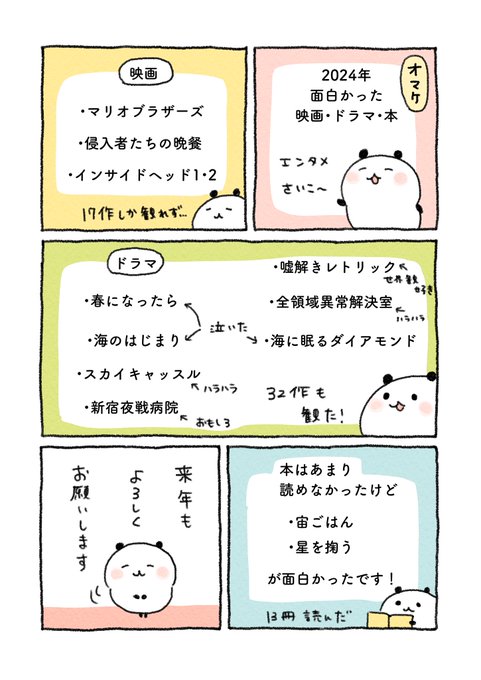 オマケ
2024年
面白かった
映画・ドラマ・本
エンタメ
さいこ〜
映画
・マリオブラザーズ
・侵入者たちの晩餐
・インサイドヘッド1・2
17作しか観れず…
ドラマ
・嘘解きレトリック
世界観
好き
・春になったら
・全領域異常解決室
ハラハラ
泣いた
・海のはじまり
・海に眠るダイアモンド
・スカイキャッスル
ハラハラ
・新宿夜戦病院
おもしろ
32作も
観た!
本はあまり
読めなかったけど
・宙ごはん
・星を掬う
が面白かったです!
13冊 読んだ
来年も
よろしく
お願いします